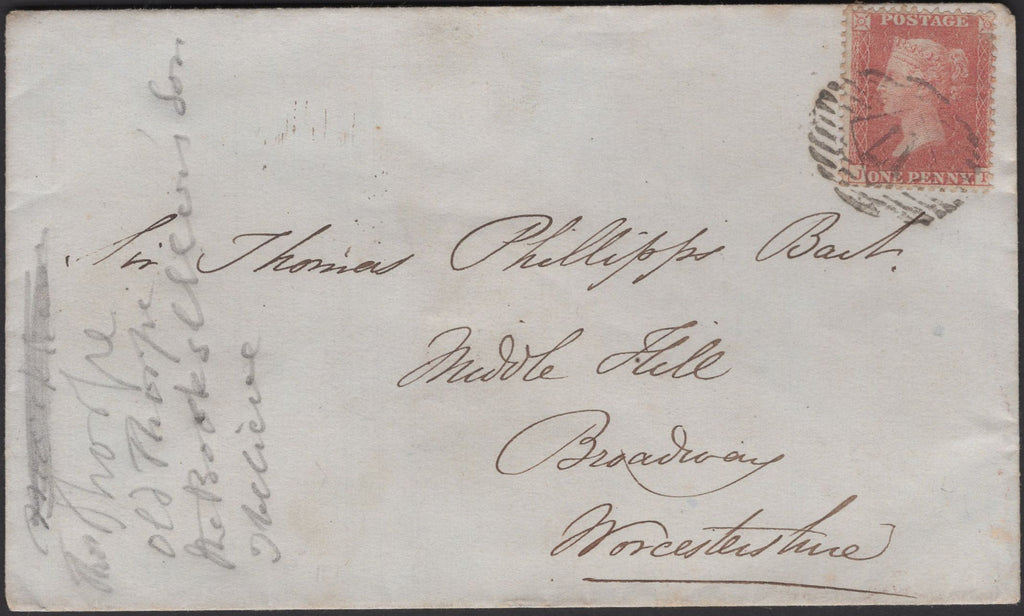 POSTAGE
ONE PENNY
Sir Thomas Phillipps Bart.
Middle Hill
Broadway
Worcestershire
Thos Thorpe
old Thorpe
the Booksellers Son
I believe